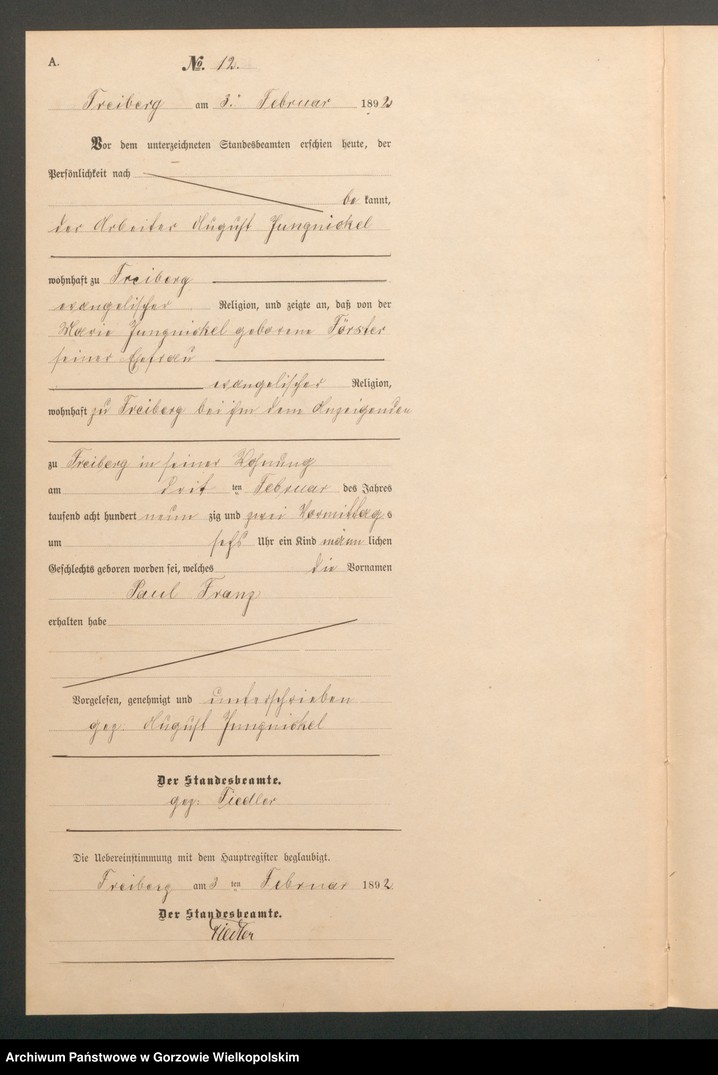 A.
No. 12.
Freiberg am 3. Februar 1892
Vor dem unterzeichneten Standesbeamten erschien heute, der
Persönlichkeit nach
be kannt,
der Arbeiter August Jungnickel
wohnhaft zu Freiberg
evangelischer Religion, und zeigte an, daß von der
Marie Jungnickel geborene Förster
seiner Ehefrau
evangelischer Religion,
wohnhaft zu Freiberg bei ihm dem Anzeigenden
zu Freiberg in seiner Wohnung
am drit ten Februar des Jahres
tausend acht hundert neun zig und zwei Vormittag s
um sechs Uhr ein Kind männ lichen
Geschlechts geboren worden sei, welches die Vornamen
Paul Franz
erhalten habe
Vorgelesen, genehmigt und unterschrieben
gez. August Jungnickel
Der Standesbeamte.
gez. Fiedler
Die Uebereinstimmung mit dem Hauptregister beglaubigt.
Freiberg am 3 ten Februar 1892.
Der Standesbeamte.
Fiedler
Archiwum Państwowe w Gorzowie Wielkopolskim